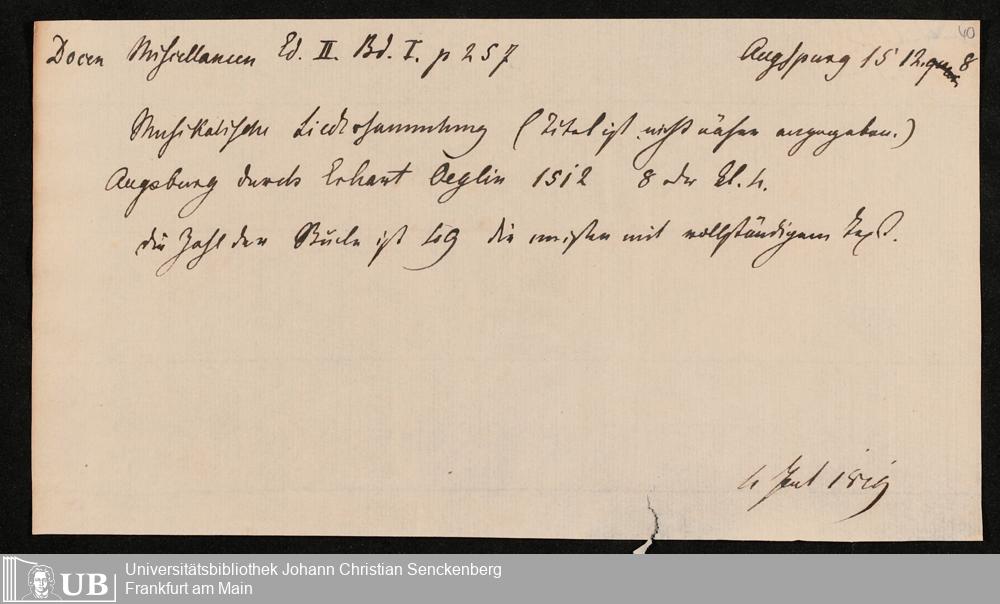 Docen Miscellaneen Ed. II. Bd. I. p 257
Augspurg 1512. 8
40
Musikalische Liedersammlung (Titel ist nicht näher angegeben.)
Augsburg durch Erhart Oeglin 1512 8 oder kl. 4.
die Zahl der Stücke ist 49 die meisten mit vollständigem Text.
UB
Universitätsbibliothek Johann Christian Senckenberg
Frankfurt am Main